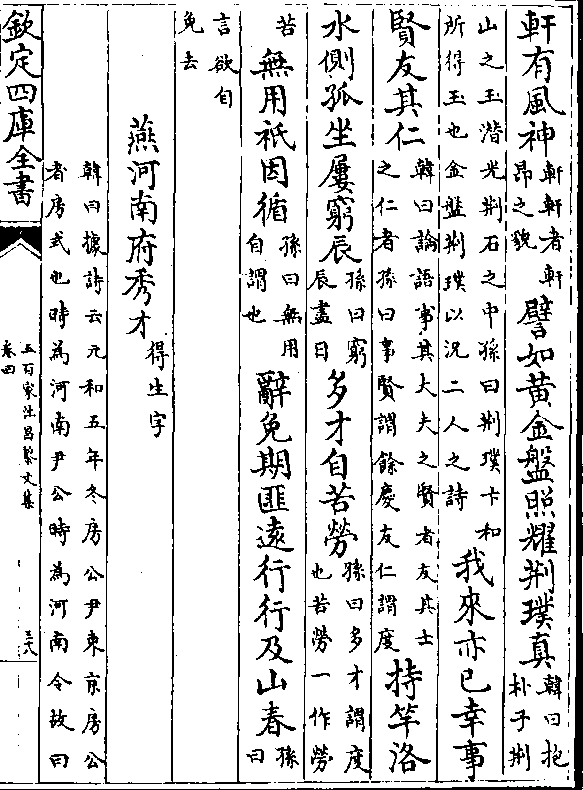 軒有風神軒軒者軒昂之貌譬如黃金盤照耀荆璞真韓曰抱朴子荆
山之玉潛光荆石之中孫曰荆璞卞和所得玉也金盤荆璞以況二人之詩我來亦已幸事
賢友其仁韓曰論語事其大夫之賢者友其士之仁者孫曰事賢謂餘慶友仁謂度持竿洛
水側孤坐屢窮辰孫曰窮辰盡日多才自苦勞孫曰多才謂度也苦勞一作勞
苦無用祇因循孫曰無用自謂也辭免期匪遠行行及山春孫曰
言欲自免去
燕河南府秀才得生字
韓曰據詩云元和五年冬房公尹東京房公
者房式也時為河南尹公時為河南令故曰
欽定四庫全書
五百家注昌黎文集
卷四
三八